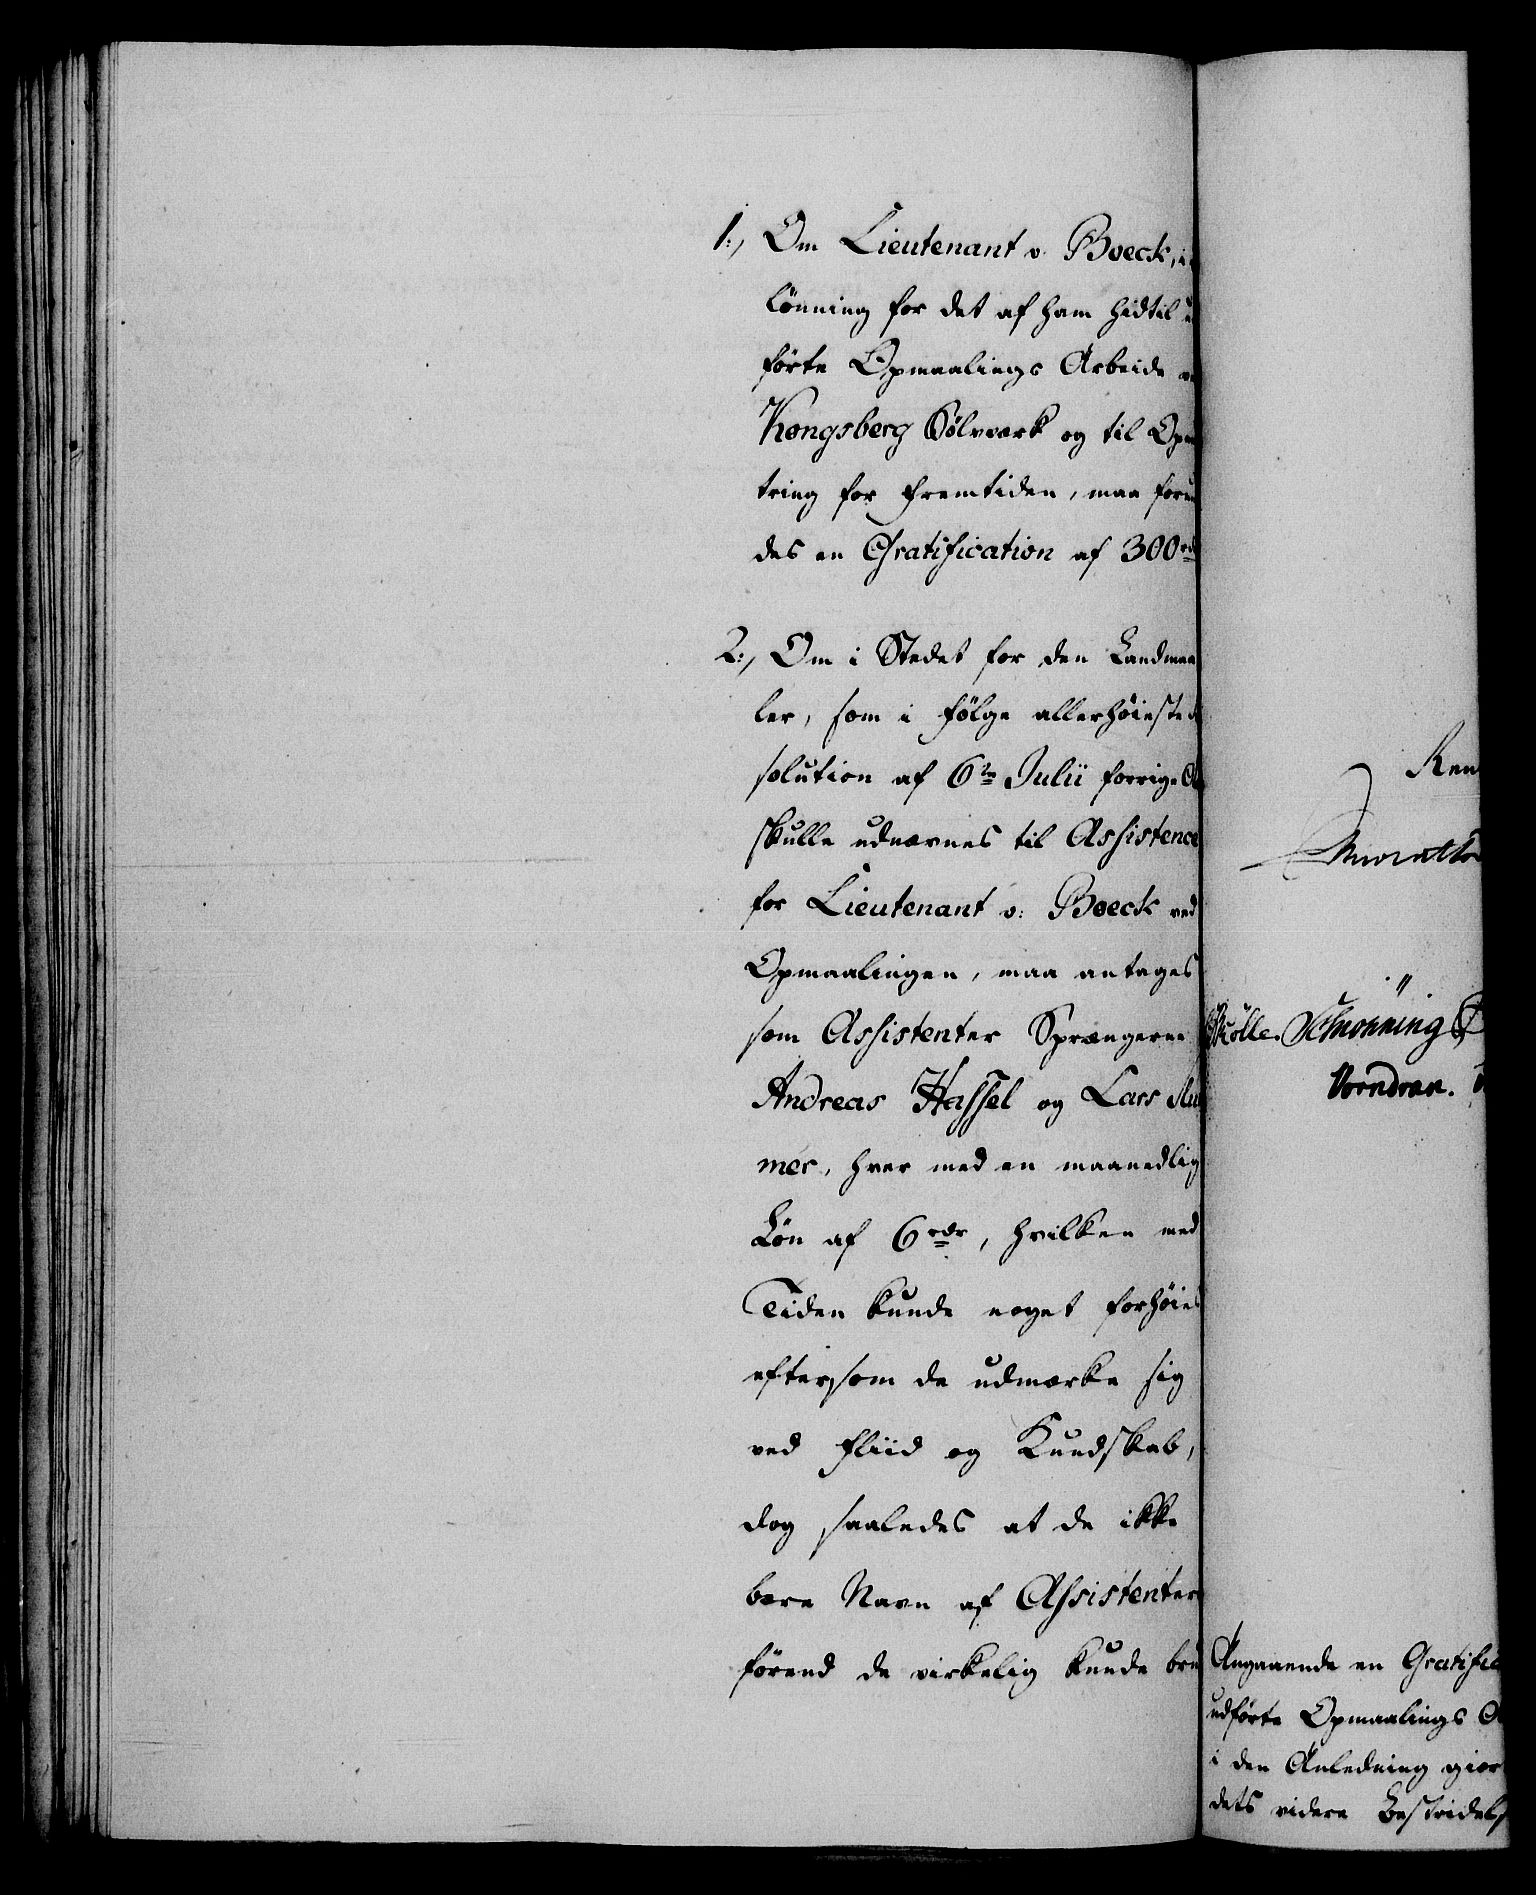 1:, Om Lieutenant v. Boeck, i
lönning for det af ham hidtil u
förte Opmaalings Arbeide ve
Kongsberg Sölvværk og til Opm
tring for Fremtiden, maa forun
des en Gratification af 300 rd
2:, Om i Stedet for den Landmaa
ler, som i Fölge allerhöieste
solution af 6te Julii forrige A
skulle udnævnes til Assistence
for Lieutenant v: Boeck ved
Opmaalingen, maa antages
som Assistenter Sprængerne
Andreas Hassel og Lars
mer, hver med en maanedlig
Lön af 6 rdr, hvilken med
Tiden kunde noget forhöies
eftersom de udmærke sig
ved Fliid og Kundskab,
dog saaledes at de ikke
bære Navn af Assistenter
förend de virkelig kunde bru
Ren
Schönning
Vorndran.
Angaaende en Gratific
udförte Opmaalings A
i den Anledning gior
dets videre Bestridels